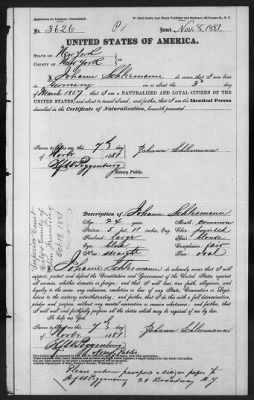 No. 3626
Issued Nov. 8, 1881.
UNITED STATES OF AMERICA.
STATE OF New York
COUNTY OF New York
I, Johann Schliemann do swear, that I was born
in Germany on or about the 3d day
of March 1857 that I am a NATURALIZED AND LOYAL CITIZEN OF THE
UNITED STATES, and about to travel abroad, and further, that I am the Identical Person
described in the Certificate of Naturalization, herewith presented.
Sworn to before me this 7th day
of Novbr. 1881
Johann Schliemann
Notary Public.
Description of Johann Schliemann
Age: 24
Mouth: common
Stature: 5 feet 11 inches, Eng.
Chin: pointed
Forehead: large
Hair: blonde
Eyes: blue
Complexion: fair
Nose: straight
Face: oval
I, Johann Schliemann do solemnly swear that I will
support, protect and defend the Constitution and Government of the United States against
all enemies, whether domestic or foreign; and that I will bear true faith, allegiance and
loyalty to the same, any ordinance, resolution or law of any State, Convention or Legis-
lature to the contrary notwithstanding; and further, that I do this with a full determination,
pledge and purpose, without any mental reservation or evasion whatsoever; and further,
that I will well and faithfully perform all the duties which may be required of me by law.
So help me God.
Sworn to before me this 7th day
of Novbr. 1881
Johann Schliemann
Notary Public
Please return passport & citizen paper to
20 Broadway N.Y.